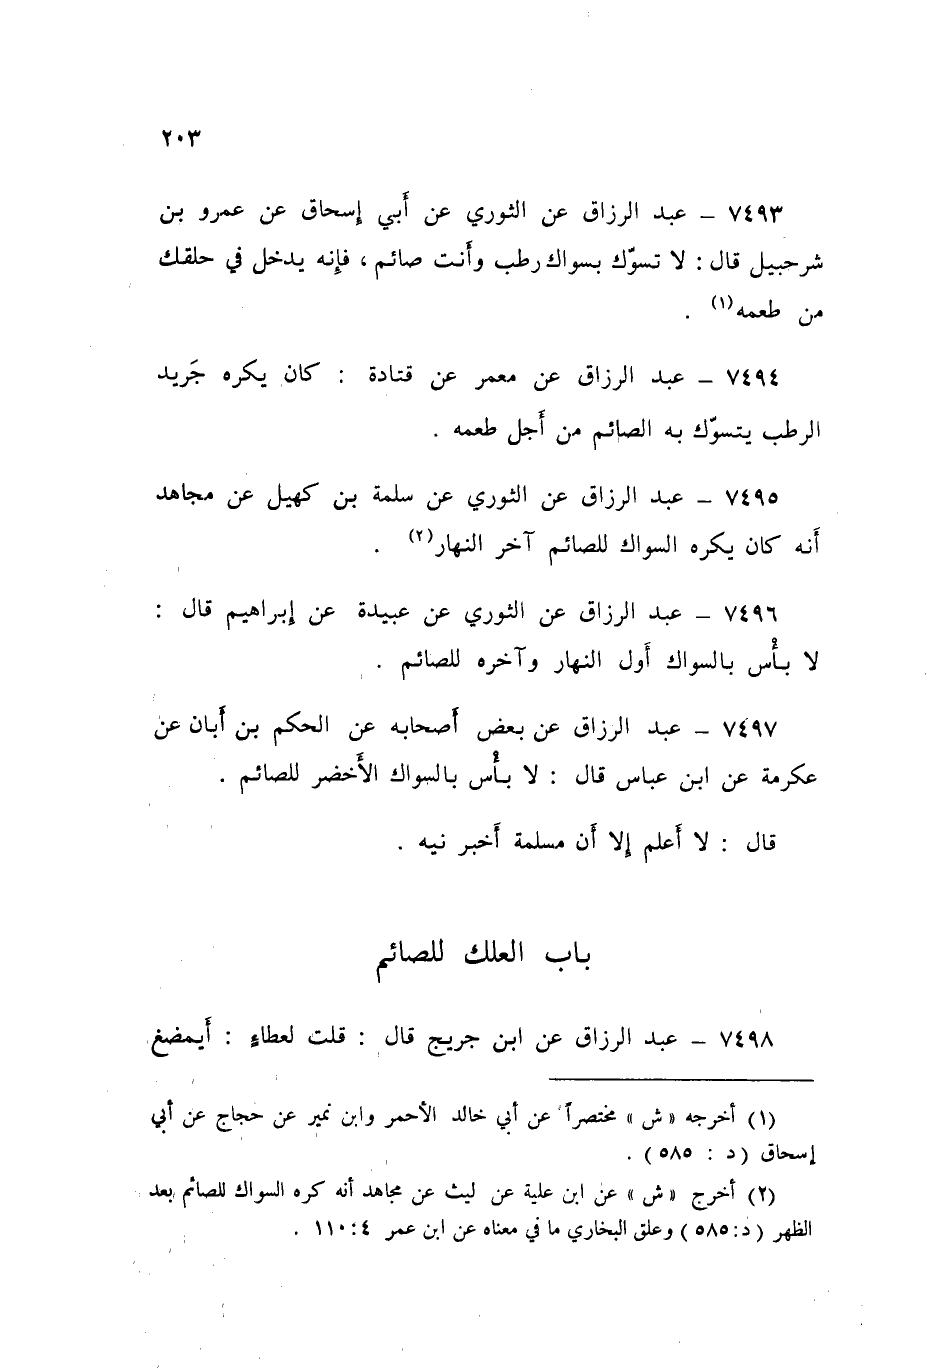 ٢٠٣
٧٤٩٣ – عبد الرزاق عن الثوري عن أَبي إسحاق عن عمرو بن
شرحبيل قال : لا تسوّك بسواك رطب وأَنت صائم ، فإنه يدخل في حلقك
من طعمه(١) .
٧٤٩٤ – عبد الرزاق عن معمر عن قتادة : كان يكره جَريد
الرطب يتسوّك به الصائم من أَجل طعمه .
٧٤٩٥ – عبد الرزاق عن الثوري عن سلمة بن كهيل عن مجاهد
أَنه كان يكره السواك للصائم آخر النهار(٢) .
٧٤٩٦ – عبد الرزاق عن الثوري عن عبيدة عن إبراهيم قال :
لا بأْس بالسواك أَول النهار وآخره للصائم .
٧٤٩٧ – عبد الرزاق عن بعض أَصحابه عن الحكم بن أَبان عن
عكرمة عن ابن عباس قال : لا بأْس بالسواك الأَخضر للصائم .
قال : لا أَعلم إلا أَن مسلمة أَخبر نيه .
باب العلك للصائم
٧٤٩٨ – عبد الرزاق عن ابن جريج قال : قلت لعطاءٍ : أَيمضغ
(١) أخرجه « ش » مختصراً عن أبي خالد الأحمر وابن نمير عن حجاج عن أبي
إسحاق ( د : ٥٨٥ ) .
(٢) أخرج « ش » عن ابن علية عن ليث عن مجاهد أنه كره السواك للصائم بعد
الظهر ( د:٥٨٥ ) وعلق البخاري ما في معناه عن ابن عمر ٤:١١٠ .